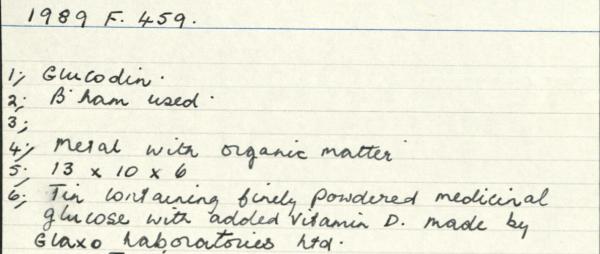 1989 F. 459.
1; Glucodin.
2; B'ham used.
3;
4; Metal with organic matter
5; 13 x 10 x 6
6; Tin containing finely powdered medicinal
glucose with added Vitamin D. made by
Glaxo Laboratories Ltd.